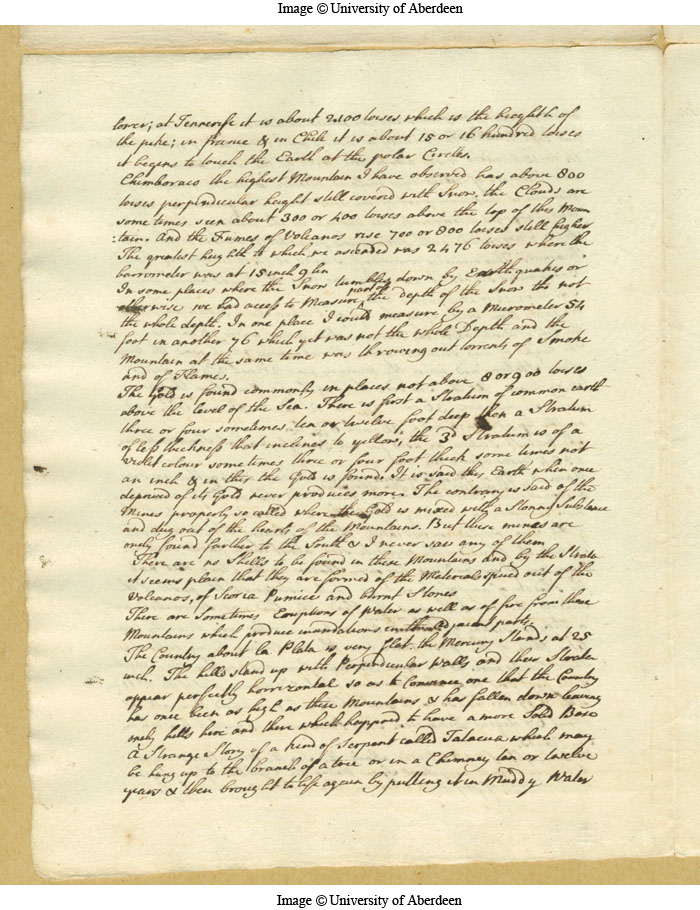 Image © University of Aberdeen
lower; at Tennerife it is about 2100 toises which is the heighth of
the pike; in france & in Chile it is about 15 or 16 hundred toises
it begins to touch the Earth at the polar Circles.
Chimboraco the highest Mountain I have observed has above 800
toises perpindicular height still covered with Snow, the Clouds are
some times seen about 300 or 400 toises above the top of this Moun
:tain. And the Fumes of Volcanos rise 700 or 800 toises still higher
The greatest heighth to which we ascended was 2476 toises where the
barrometer was at 15 inch 9 lin
In some places where the Snow tumbles down by Earthquakes or
otherwise we had access to Measure part of the depth of the Snow tho not
the whole depth. In one place I could measure by a Micrometer 54
foot in another 76 which yet was not the whole Depth and the
Mountain at the same time was throwing out torrents of Smoke
and of Flames.
The Gold is found commonly in places not above 8 or 900 toises
above the level of the Sea. There is first a Stratum of common earth
three or four sometimes ten or twelve foot deep then a Stratum
of less thickness that inclines to yellow, the 3d Stratum is of a
violet colour some times three or four foot thick some times not
an inch & in this the Gold is found. It is said this Earth when once
deprived of its Gold never produces more. The contrary is said of the
Mines properly so called where the Gold is mixed with a Stonny Substance
and dug out of the hearts of the Mountains. But these mines are
only found farther to the South & I never saw any of them
There are no Shells to be found in these Mountains and by the Strata
it seems plain that they are formed of the Materials spued out of the
Volcanos, of Scoria Pumice and burnt Stones
There are Sometimes Eruptions of Water as well as of fire from these
Mountains which produce inundations in the adjacent parts.
The Country about La Plata is very flat. the Mercury Stands at 25
inch. The hills stand up with Perpendicular Walls and their Strata
appear perfectly horrizontal so as to Convince one that the Country
has once been as high as these Mountains & has fallen down leaving
only hills here and there which happned to have a more Solid Base
A Strange Story of a kind of Serpent called Talacua which may
be hung up to the branch of a tree or in a Chimney ten or twelve
years & then brought to life again by putting it in Muddy Water
Image © University of Aberdeen